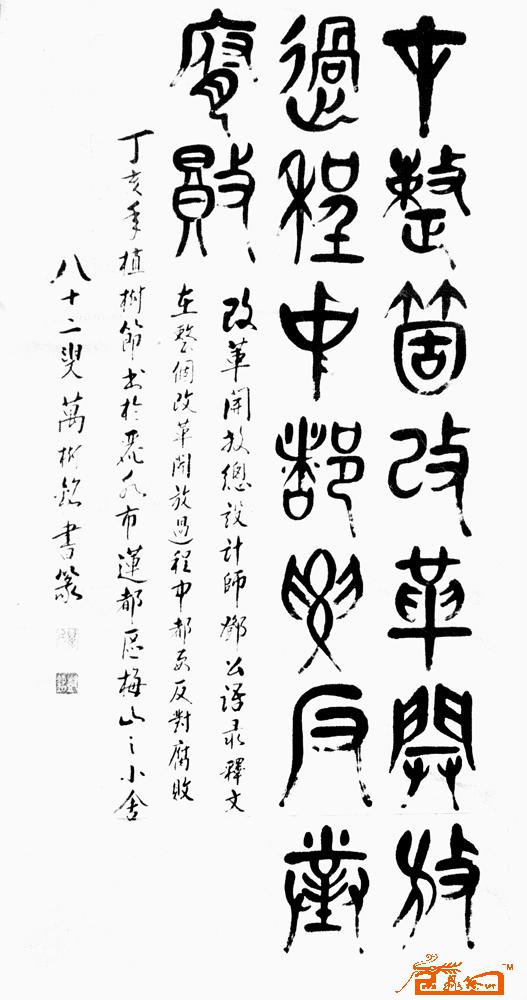 在整箇改革開放
過程中都要反對
腐敗
改革開放總設計師鄧公語录釋文
在整個改革開放過程中都要反對腐敗
丁亥年植樹節书於麗水市蓮都區梅山之小舍
八十二叟萬樹銘書篆
TM